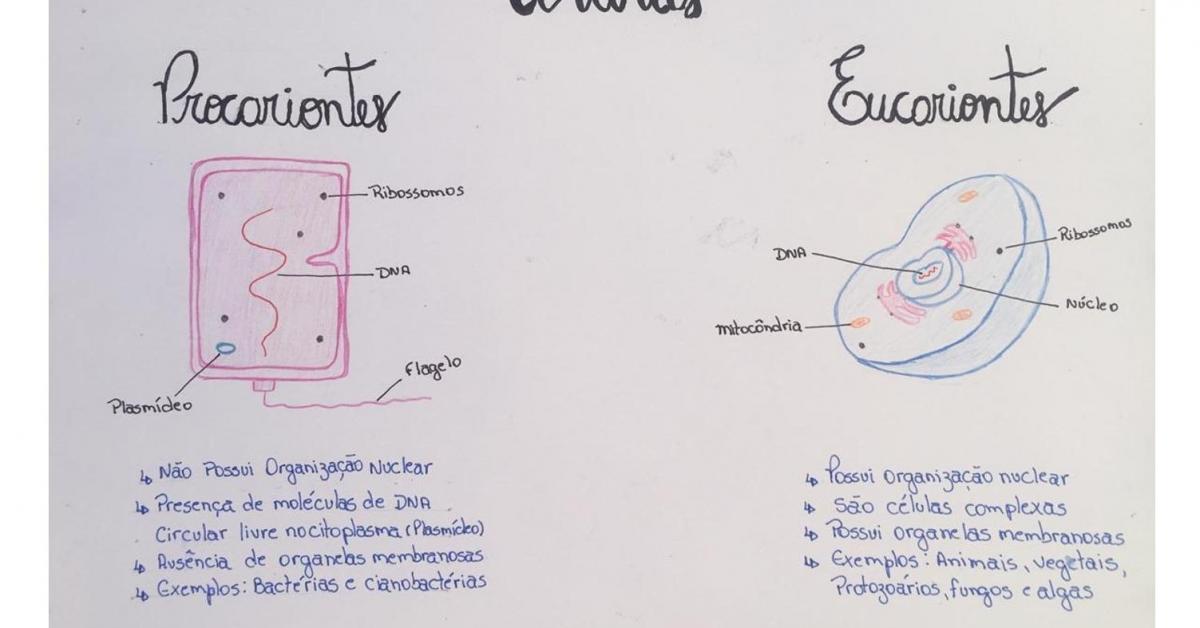 Procariontes
Ribossomos
DNA
Flagelo
Plasmídeo
↳ Não Possui Organização Nuclear
↳ Presença de moléculas de DNA
Circular livre no citoplasma (Plasmídeo)
↳ Ausência de organelas membranosas
↳ Exemplos: Bactérias e cianobactérias
Eucariontes
DNA
Ribossomos
Núcleo
mitocôndria
↳ Possui organização nuclear
↳ São células complexas
↳ Possui organelas membranosas
↳ Exemplos: Animais, vegetais,
Protozoários, fungos e algas